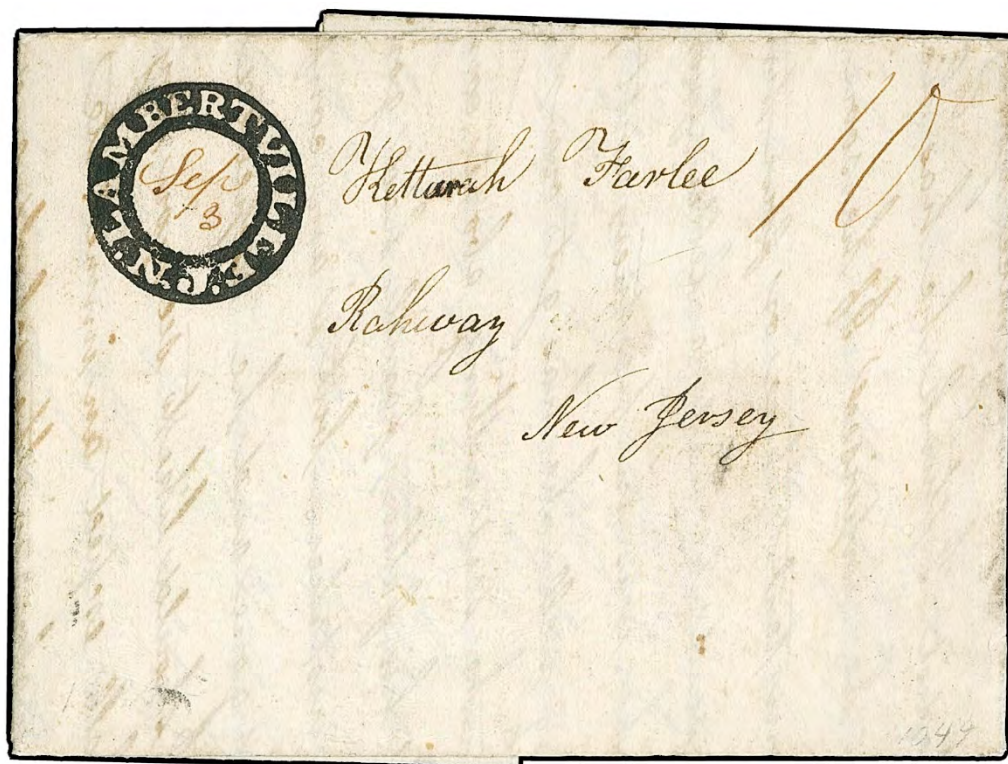 LAMBERTVILLE. N.J.
Sep
3
10
Ketturah Farlee
Rahway
New Jersey
1249